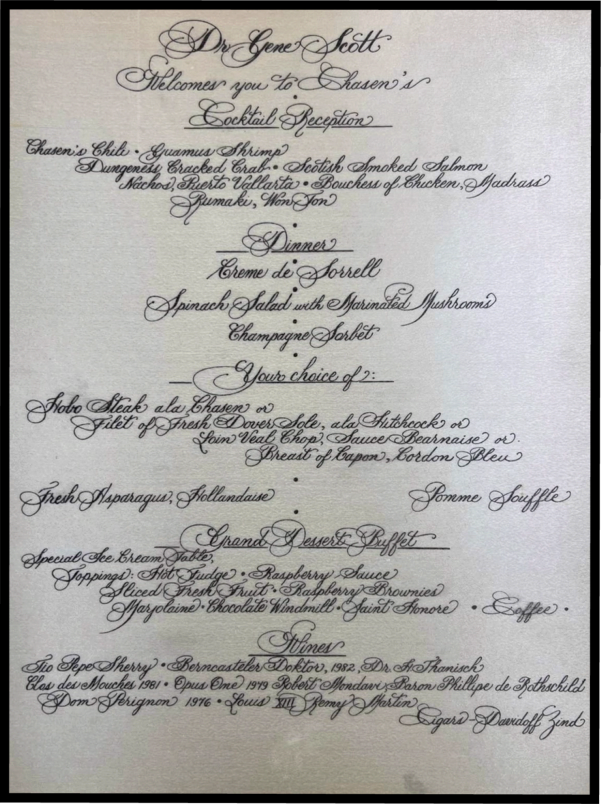 Dr Gene Scott
Welcomes you to Chasen's
Cocktail Reception
Chasen's Chili • Guamus Shrimp
Dungeness Cracked Crab • Scotish Smoked Salmon
Nachos, Puerto Vallarta • Bouchess of Chicken, Madrass
Rumaki, Won Ton
Dinner
Creme de Sorrell
Spinach Salad with Marinated Mushrooms
Champagne Sorbet
Your choice of:
Hobo Steak ala Chasen or
Filet of Fresh Dover Sole, ala Hitchcock or
Loin Veal Chop, Sauce Bearnaise or
Breast of Capon, Cordon Bleu
Fresh Asparagus, Hollandaise Pomme Souffle
Grand Dessert Buffet
Special Ice Cream Table,
Toppings: Hot Fudge • Raspberry Sauce
Sliced Fresh Fruit • Raspberry Brownies
Marjolaine • Chocolate Windmill • Saint Honore • Coffee •
Wines
Tio Pepe Sherry • Berncasteler Doktor, 1982, Dr. H Thanisch
Clos des Mouches 1981 • Opus One 1979 Robert Mondavi, Baron Phillipe de Rothschild
Dom Perignon 1976 • Louis XIII Remy Martin
Cigars - Davidoff Zind